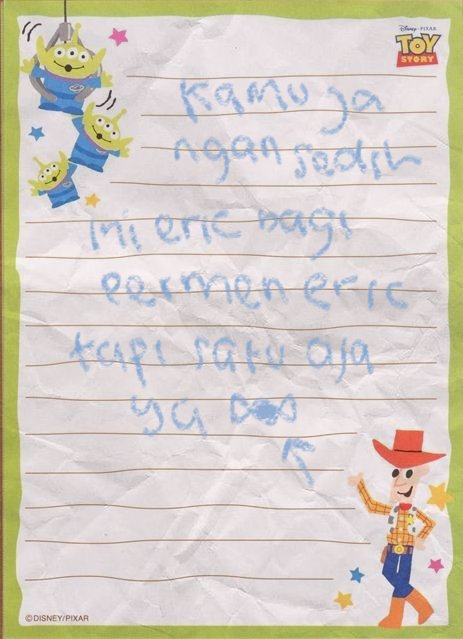 Disney · PIXAR
TOY
STORY
Kamu ja
ngan sedih
ini eric bagi
permen eric
tapi satu aja
ya
©DISNEY/PIXAR